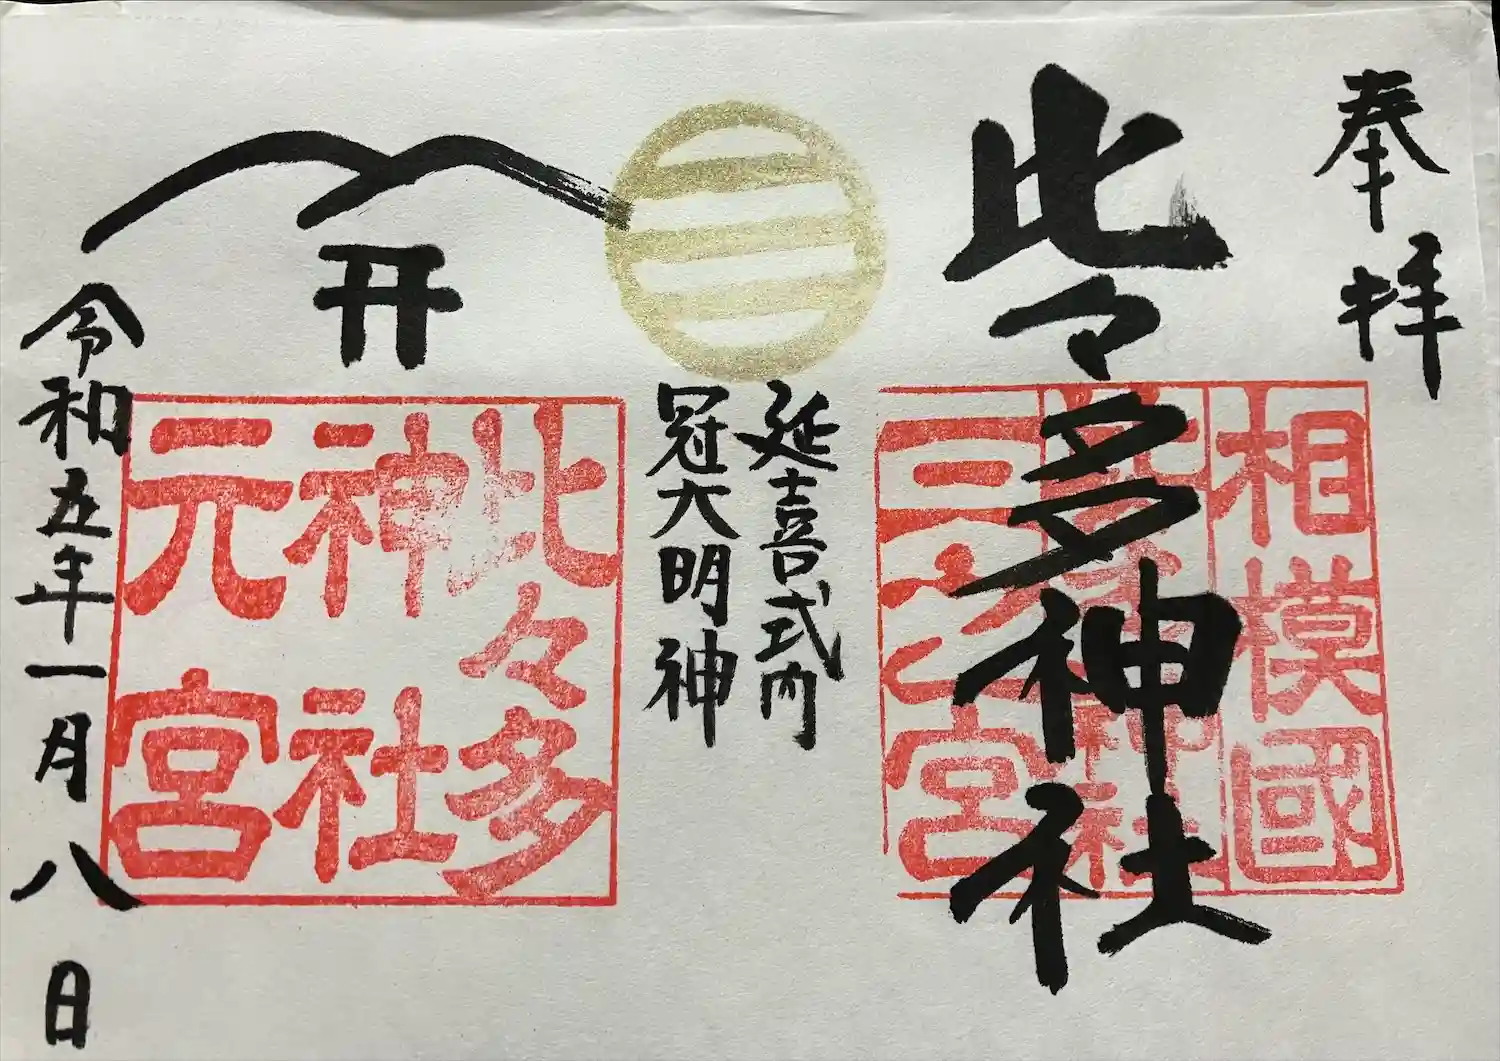 奉拝
比々多神社
相模國
三之宮
延喜式内
冠大明神
比々多
神社
元宮
令和五年一月八日